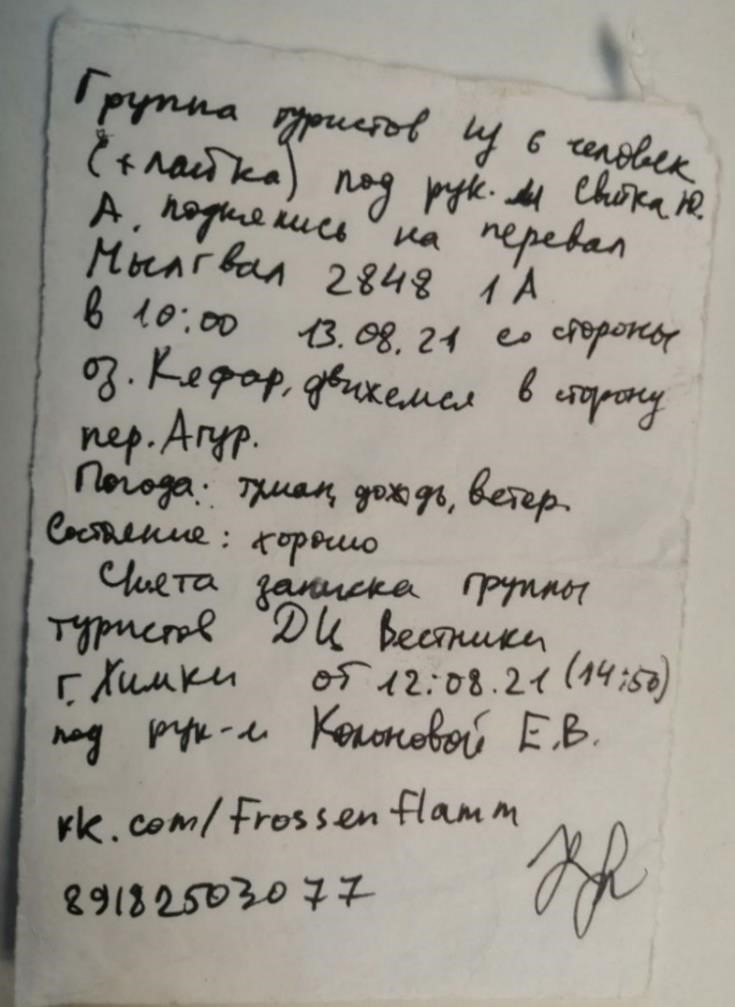 Группа туристов из 6 человек
(+ лайка) под рук. Свитка Ю.
А. поднялись на перевал
Мылгвал 2848 1А
в 10:00 13.08.21 со стороны
оз. Кяфар, движемся в сторону
пер. Агур.
Погода: туман, дождь, ветер.
Состояние: хорошо
Снята записка группы
туристов ДЦ Вестники
г. Химки от 12:08.21 (14:50)
под рук-м Е.В.
vk.com/Frossenflamm
89182503077